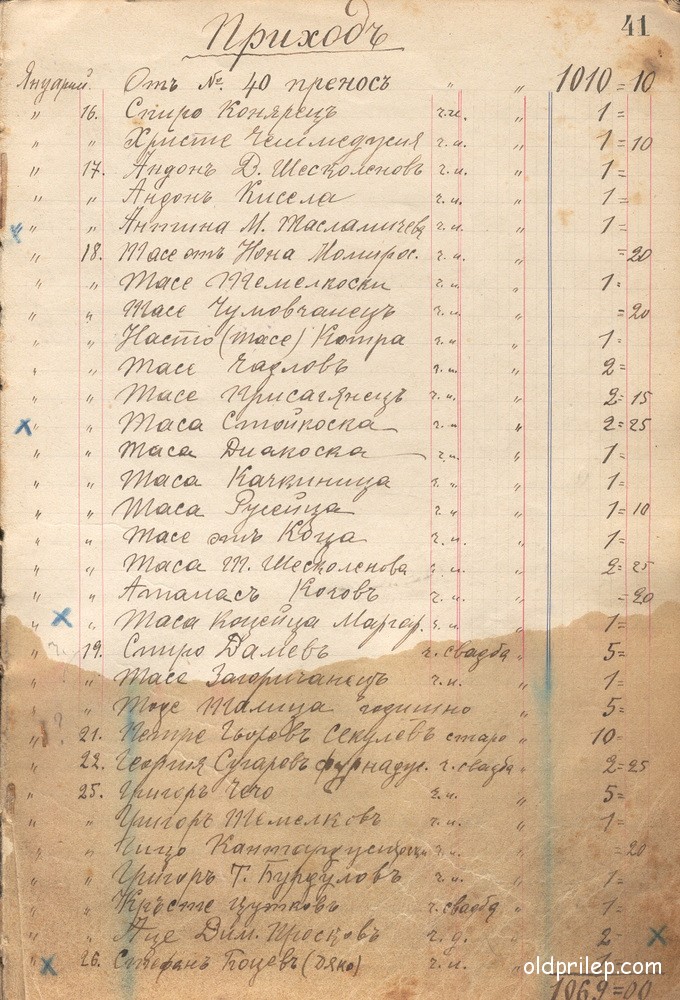 41
Приходъ
Януарий. Отъ №. 40 преносъ " " 1010 = 10
" 16. Спиро Конярецъ ч.и. " 1 =
" " Христе " 1 = 10
" 17. Андонъ Д. Шесколеновъ ч.и. " 1 =
" " Андонъ Кисела ч.и. " 1 =
" " М. Тасламичева ч.и. " 1 =
" 18. Тасе отъ Нона ч.и. " = 20
" " Тасе Темелкоски ч.и. " 1 =
" " Тасе Чумовчанецъ ч.и. " = 20
" " Насто (Тасе) Котра ч.и. " 1 =
" " Тасе Чадловъ ч.и. " 2 =
" " Тасе Крисагянецъ ч.и. " 2 = 15
" " Таса Стойкоска ч.и. " 2 = 25
" " Таса Диакоска ч.и. " 1 =
" " Таса Качкиница ч.и. " 1 =
" " Таса Русейца ч.и. " 1 = 10
" " Тасе отъ Коца ч.и. " 1 =
" " Таса Т. Шесколенова ч.и. " 2 = 25
" " Атанасъ Коговъ ч.и. " = 20
" " Таса Коцейца Маргар. ч.и. " 1 =
" 19. Спиро Далевъ ч. свадба " 5 =
" " Тасе Загоричанецъ ч.и. " 1 =
" " Талица годишно " 5 =
" 21. Петре Гьоровъ Секуловъ старо " 10 =
" 22. Георгия Сугаровъ ч. свадба " 2 = 25
" 25. Григоръ Чечо ч.и. " 5 =
" " Григоръ Темелковъ ч.и. " 1 =
" " ч.и. " = 20
" " Григоръ Т. Бурдуловъ ч.и. " 1 =
" " Кръсте Цутковъ ч. свадба " 1 =
" " Аце Дим. ч.д. " 2 =
" 26. Стефанъ Боцевъ (Дяко) ч.и.
1069 = 00
oldprilep.com